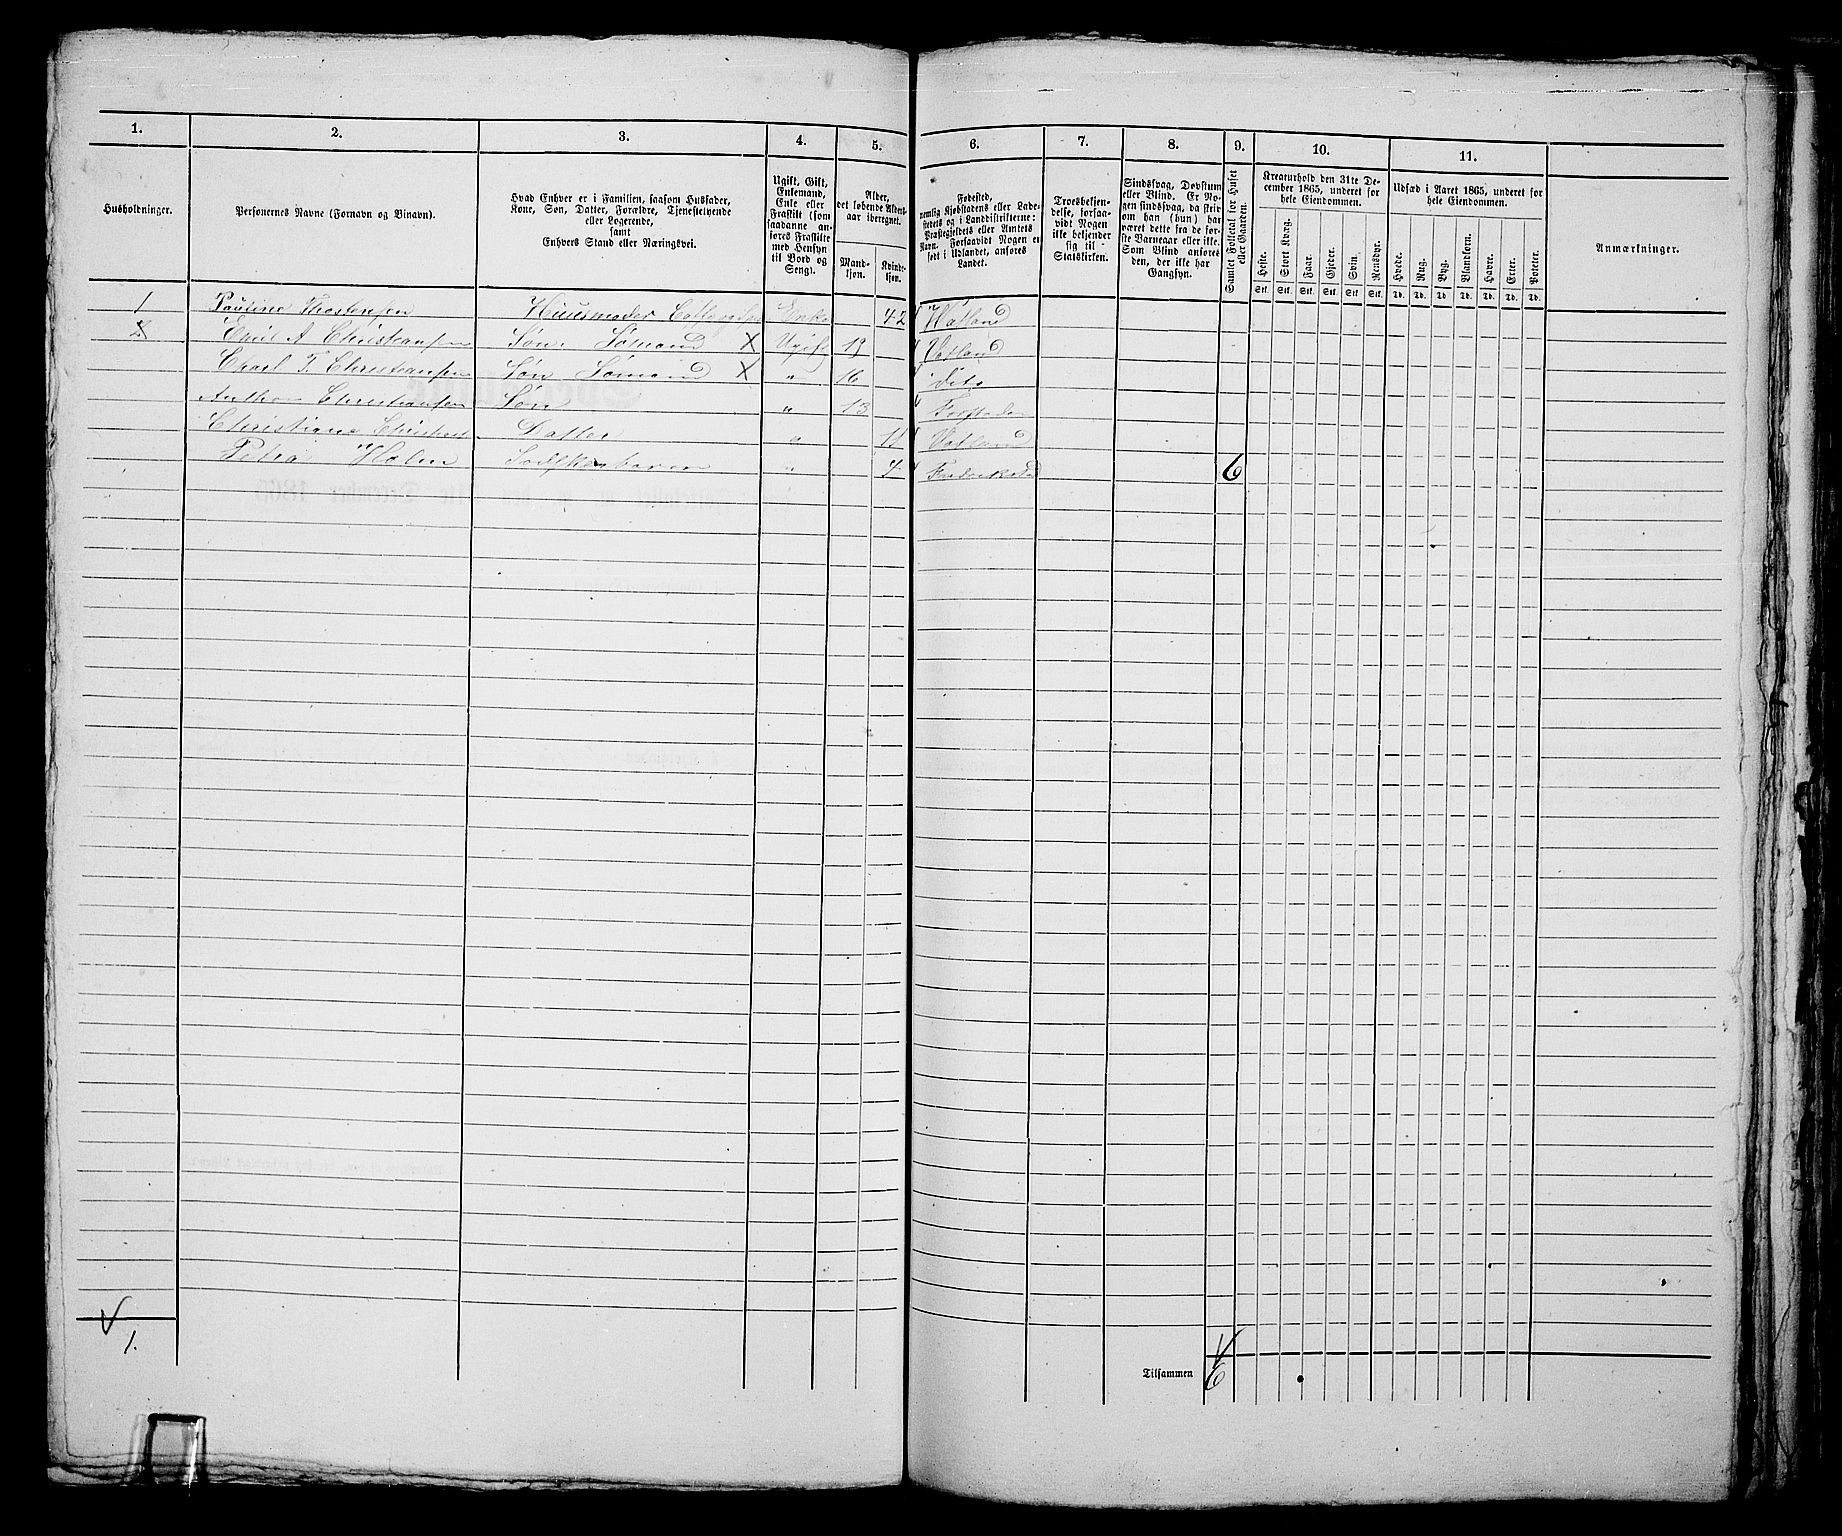 1. 2. 3. 4. 5. 6. 7. 8. 9. 10. 11.
Husholdninger.
Personernes Navne (Fornavn og Binavn).
Hvad Enhver er i Familien, saasom Husfader,
Kone, Søn, Datter, Forældre, Tjenestetyende
eller Logerende,
samt
Enhvers Stand eller Næringsvei.
Ugift, Gift,
Enkemand,
Enke eller
Fraskilt (som
saadanne an-
føres Fraskilte
med Hensyn
til Bord og
Seng).
Alder,
det løbende Alders-
aar iberegnet.
Mand-
kjøn.
Kvinde-
kjøn.
Fødested,
nemlig Kjøbstadens eller Lade-
stedets og i Landdistrikterne:
Præstegjeldets eller Amtets
Navn. Forsaavidt Nogen er
født i Udlandet, anføres
Landet.
Troesbekjen-
delse, forsaa-
vidt Nogen
ikke bekjender
sig til
Statskirken.
Sindssvag, Døvstum
eller Blind. Er No-
gen sindssvag, da skri-
ves om han (hun) har
været dette fra de før-
ste Barneaar eller ikke.
Som Blind anføres
den, der ikke har
Gangsyn.
Samlet Folketal for Huset
eller Gaarden.
Kreaturhold den 31te De-
cember 1865, underet for
hele Eiendommen.
Heste. Stort Kvæg. Faar. Gjeder. Svin. Rensdyr.
Stk. Stk. Stk. Stk. Stk. Stk.
Udsæd i Aaret 1865, underet for
hele Eiendommen.
Hvede. Rug. Byg. Blandkorn. Havre. Erter. Poteter.
Td. Td. Td. Td. Td. Td. Td.
Anmærkninger.
1 Pauline Thostensen Huusmoder Enke 42
Emil A Christiansen Søn Sømand X Ugift 19 Vatland
Charl T. Christiansen Søn Sømand X " 16 Dito
Anthon Christiansen Søn " 13
Datter " Vatland
Petra Holm " 4 6
1.
Tilsammen 6